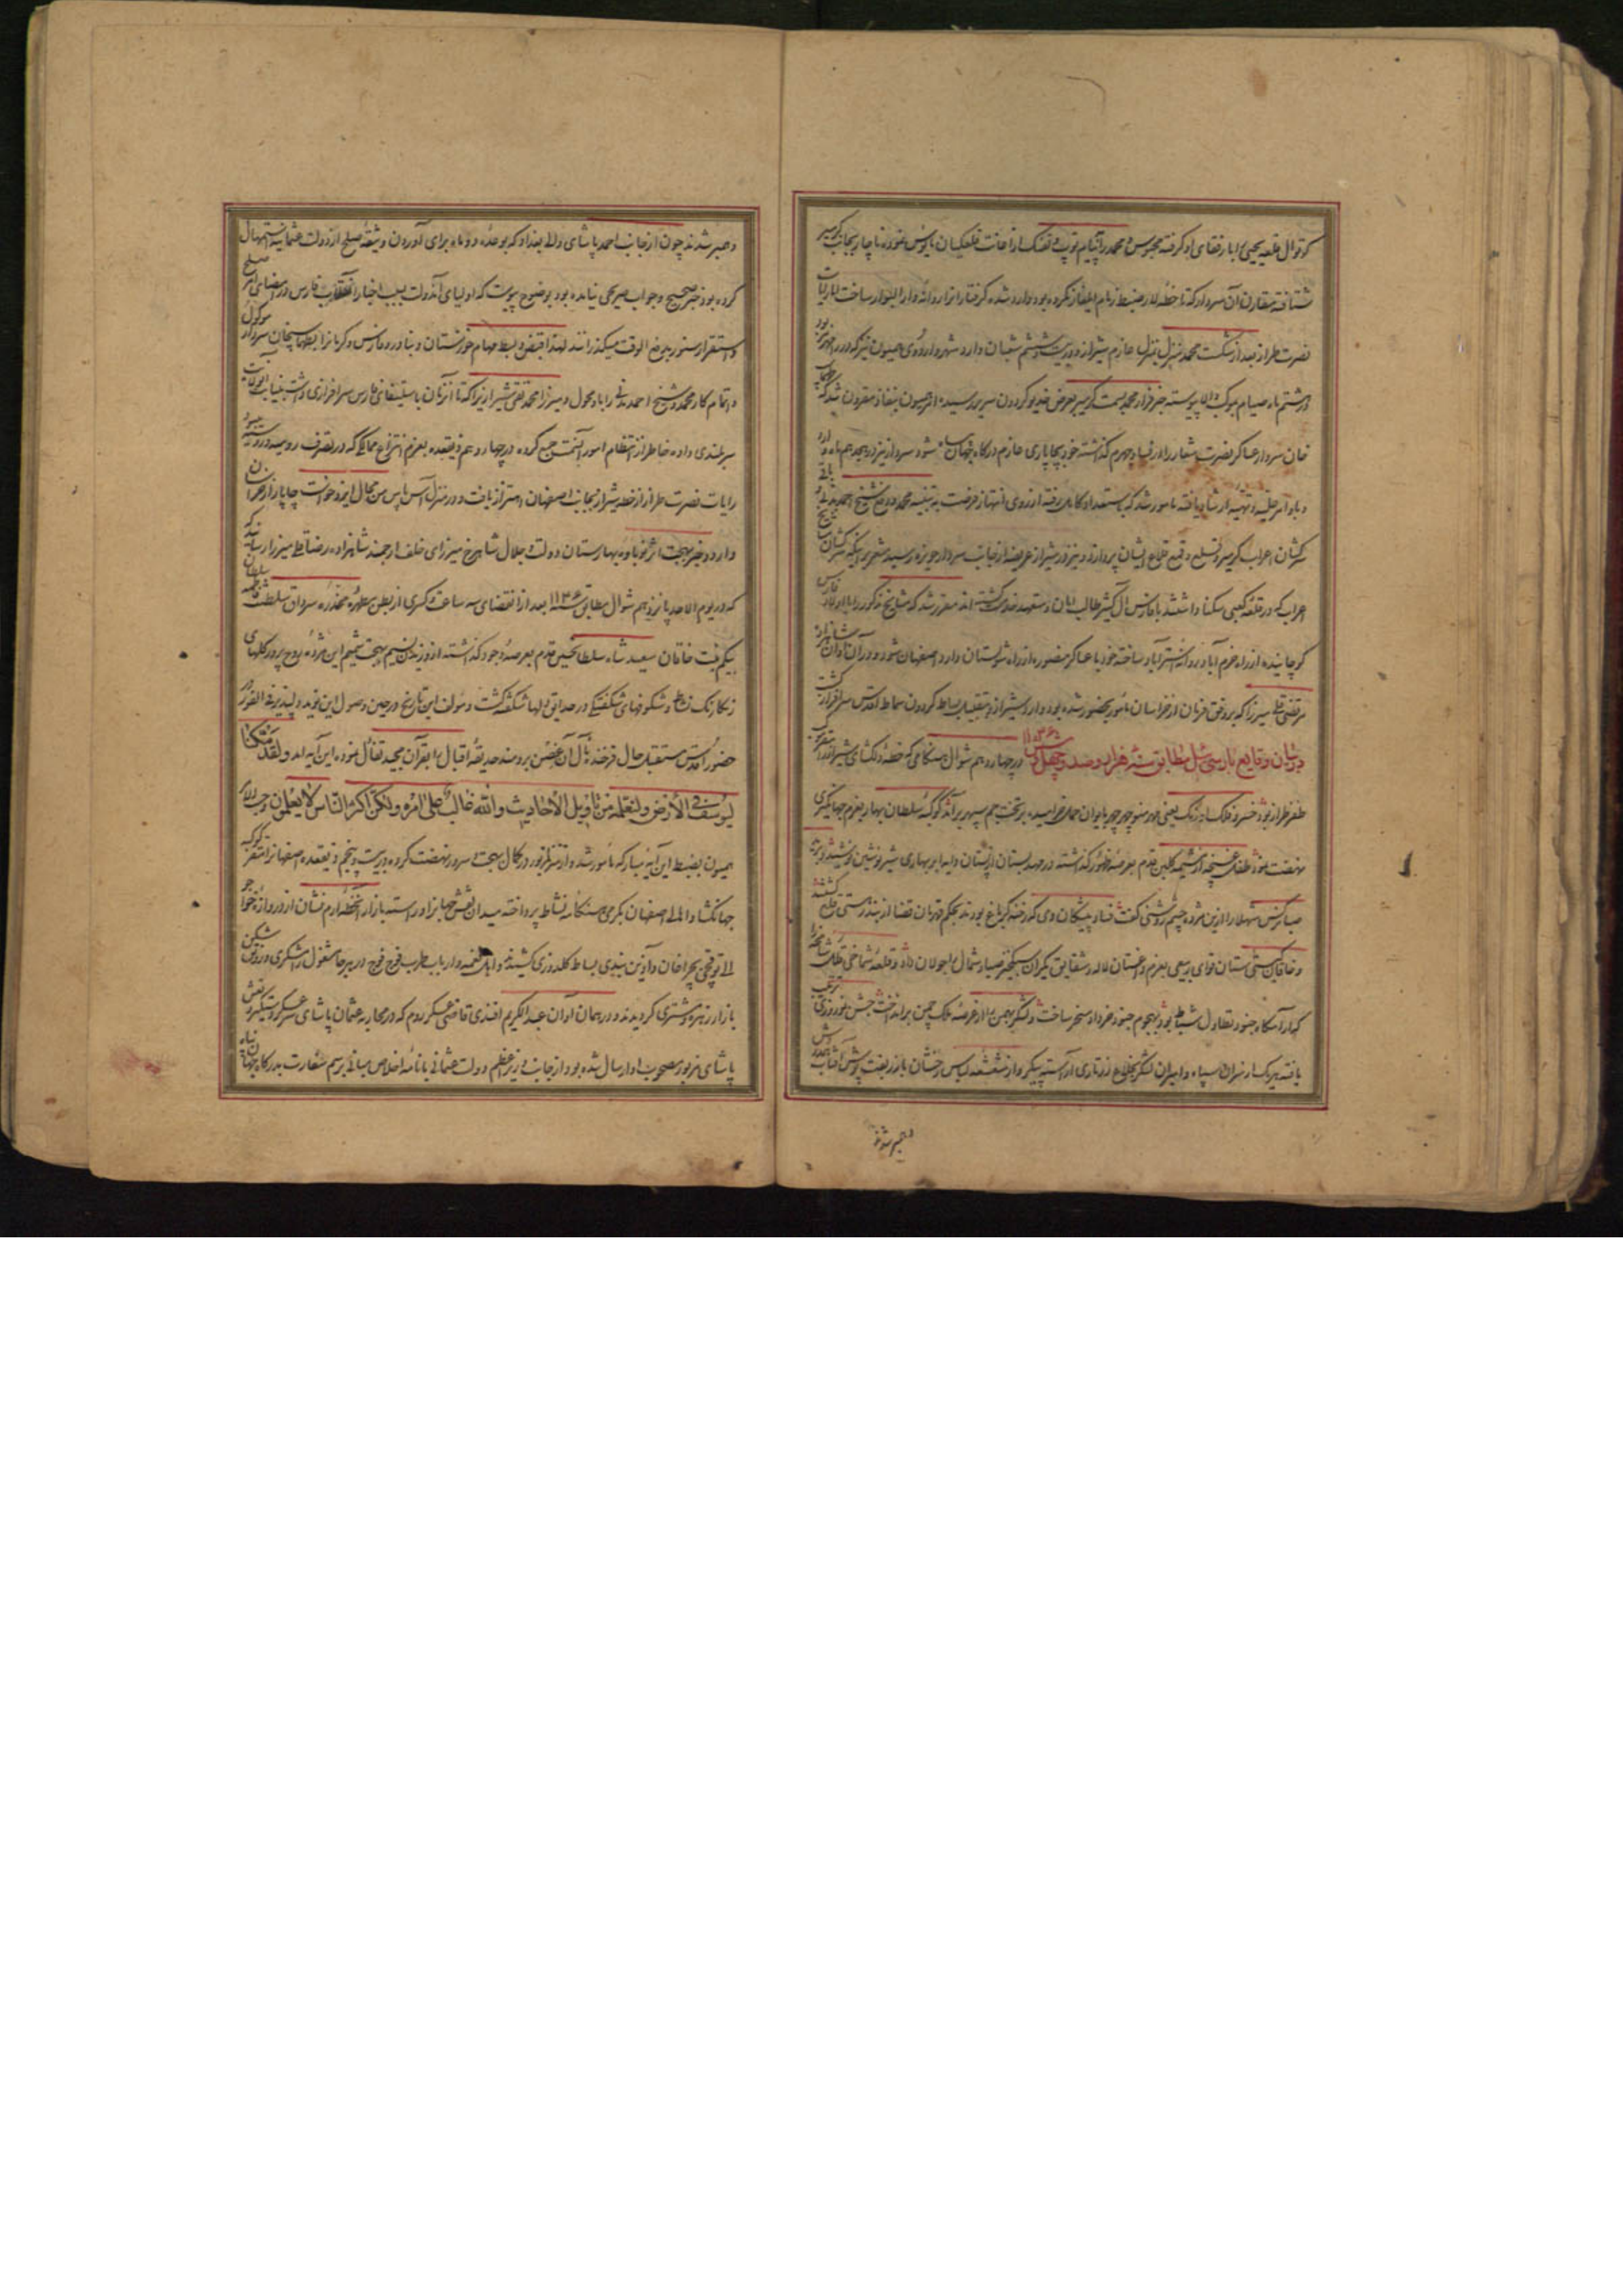 کوتوال قلعه یحیی را با رفقای او گرفته محبوس و محمد را بانتقام توپ و تفنک از اعانت قلعکیان مایوس نموده ناچار بجانب کرمسیر
شتافته مقارن آن سردار که تا خطه لار ضبط زمام ایلغار نکرده بود وارد شده گرفتار انرا روانه دارالبوار ساخت اما رایات
نصرت طراز بعد از شکست محمد منزل بمنزل عازم شیراز و در بیست و ششم شعبان وارد شهر و اردوی همیون نیز که در رامهرمز بود
در هشتم ماه صیام بموکب والا پیوسته خبر فرار محمد بسمت کرمسیر بعرض خدیو کردون سریر رسید امر همیون بنفاذ مقرون شد که طهماسب
خان سردار عساکر نصرت شعار را در فسا و جهرم گذاشته خود بچاپاری عازم درگاه جهان پناه شود سردار نیز در هجدهم ماه وارد
و باوامر علیه و تنبیه ارشاد یافته مامور شد که با استعداد کامل رفته از روی انتهاز فرصت به تنبیه محمد و دفع شیخ احمد مدنی و باقی
سرکشان اعراب کرمسیر و تسخیر و قمع قلاع ایشان پردازد و نیز در شیراز عریضه از جانب سردار حویزه رسید مشعر بر اینکه سرکشان مشایخ
اعراب که در قلعه کعبی سکنا داشتند با فارس آل کثیر طالب امان و متعهد خدمت گشته اند مقرر شد که مشایخ مذکور را با اولاد فارس
کوچانیده از راه خرم آباد روانه استرآباد ساخته خود با عساکر منصوره از راه شولستان وارد اصفهان شود و در آن اوان شاهزاده
مرتضی قلی میرزا که بر وفق فرمان از خراسان مامور بحضور شده بود وارد شیراز و بتقبیل بساط کردون سماط اقدس سرافراز گشت
در بیان وقایع بارس ئیل مطابق سنه هزار و صد و چهل و شش ۱۱۴۶ در چهاردهم شوال هنگامی که خطه دلکشای شیراز مقر موکب
ظفر طراز بود خسرو فلک اورنک یعنی مهر منوچهر چهر بایوان حمل خرامیده بر تخت جم سپهر برآمد کوکبه سلطان بهار بعزم جهانگیری
نهضت نمود طفل غنچه از مشیمه گلبن قدم بعرصه ظهور گذاشته در مهد بستان از پستان دایه ابر بهاری شیر نوشین نوشید و دیده
صبا نرکس شهلا را ازین مژده چشم روشنی گفت فساد پیشکان دی که رخنه گر باغ بودند بحکم قهرمان قضا از بند رستی قلع گشتند
و خاقان گیتی ستان قوای ربیعی بعزم داغستان لاله و شقایق یکران سبکخیز صبا و شمال را جولان داد و قلعه شماخی قلمک شاخها را
که آرامگاه جنود تطاول شتا بود بهجوم جنود خرداد مسخر ساخت و لشکر بهمن را از عرصه ملک چمن برانداخت جشن نوروزی ترتیب
یافته هریک از سران سپاه و امیران لشکر بخلاع زرتاری آراسته پیکر و از شعشعه لباس رخشان بازر بفت پوش آفتاب
همبر شدند
و همبر شدند چون از جانب احمد پاشای والی بغداد که بوعده دو ماه برای آوردن وثیقه صلح از دولت عثمانیه استمهال
کرده بود خبر صحیح و جواب صریحی نیامده بود بوضوح پیوست که اولیای آندولت بسبب اخبار انقلاب فارس در امضای امر صلح
و استقرار سنور بدفع الوقت میگذرانند لهذا قبض و بسط مهام خوزستان و بنادر و فارس و کرمانرا بطهماسبخان سردار موکول
و اتمام کار محمد و شیخ احمد مدنی را باو محول و میرزا محمد تقی شیرازیرا که تا آنزمان باستیفای فارس سرافرازی داشت به نیابت ایالت
سربلندی داده خاطر از انتظام امور آنسمت جمع کرده در چهاردهم ذیقعده بعزم انتزاع ممالکی که در تصرف رومیه و روسیه بود
رایات نصرت طراز از خطه شیراز بجانب اصفهان اهتزاز یافت و در منزل آس پاس من محال ایزدخواست چاپار از خراسان
وارد و خبر بهجت اثر نوباوه بهارستان دولت و جلال شاهرخ میرزای خلف ارجمند شاهزاده رضاقلی میرزا رسانید که
که در یوم الاحد پانزدهم شوال مطابق سنه ۱۱۴۶ بعد از انقضای سه ساعت و کسری از بطن مطهره مخدره سرادق سلطنت فاطمه سلطان
بیگم بنت خاقان سعید شاه سلطان حسین قدم بعرصه وجود گذاشته از وزیدن نسیم بهجت شمیم این مژده روح پرور گلهای
رنگارنک نشاط و شکوفهای شکفتگی در حدایق دلها شکفته گشت و مولف این تاریخ در حین وصول این نوید دلپذیر فی الفور در
حضور اقدس مستقبل حال فرخنده مآل آن غصن برومند حدیقه اقبال را بقرآن مجید تفال نموده این آیه آمد ولقد مکنا
لیوسف فی الأرض ولنعلمه من تأویل الأحادیث والله غالب علی امره ولکن اکثر الناس لا یعلمون حسب الامر
همیون بضبط این آیه مبارکه مامور شد و از منزل مزبور در کمال بهجت و سرور نهضت کرده در بیست و پنجم ذیقعده اصفهانرا مقر کوکبه
جهانگشا و اهالی اصفهان بگرمی هنگامه نشاط پرداخته میدان نقش جهانرا و راسته بازار آنخطه ارم نشان از دروازه خواجو
الی توقچی چراغان و آذین بندی بساط گلدوزی گشیدند و اهل نغمه و ارباب طرب فوج فوج در هر جا مشغول رامشگری و رونق شکن
بازار زهره و مشتری گردیدند و در همان اوان عبدالکریم افندی قاضی عسکر روم که در محاربه عثمان پاشای سرعسکر دستگیر و نعش
پاشای مزبور مصحوب او ارسال شده بود از جانب وزیر اعظم دولت عثمانی با نامه اخلاص مبانی برسم سفارت بدرگاه جهان پناه